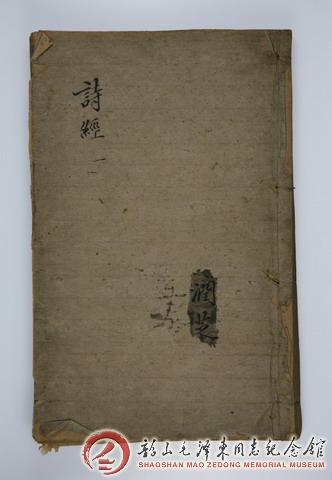 詩經 一
潤芝
韶山毛澤東同志紀念館
SHAOSHAN MAO ZEDONG MEMORIAL MUSEUM